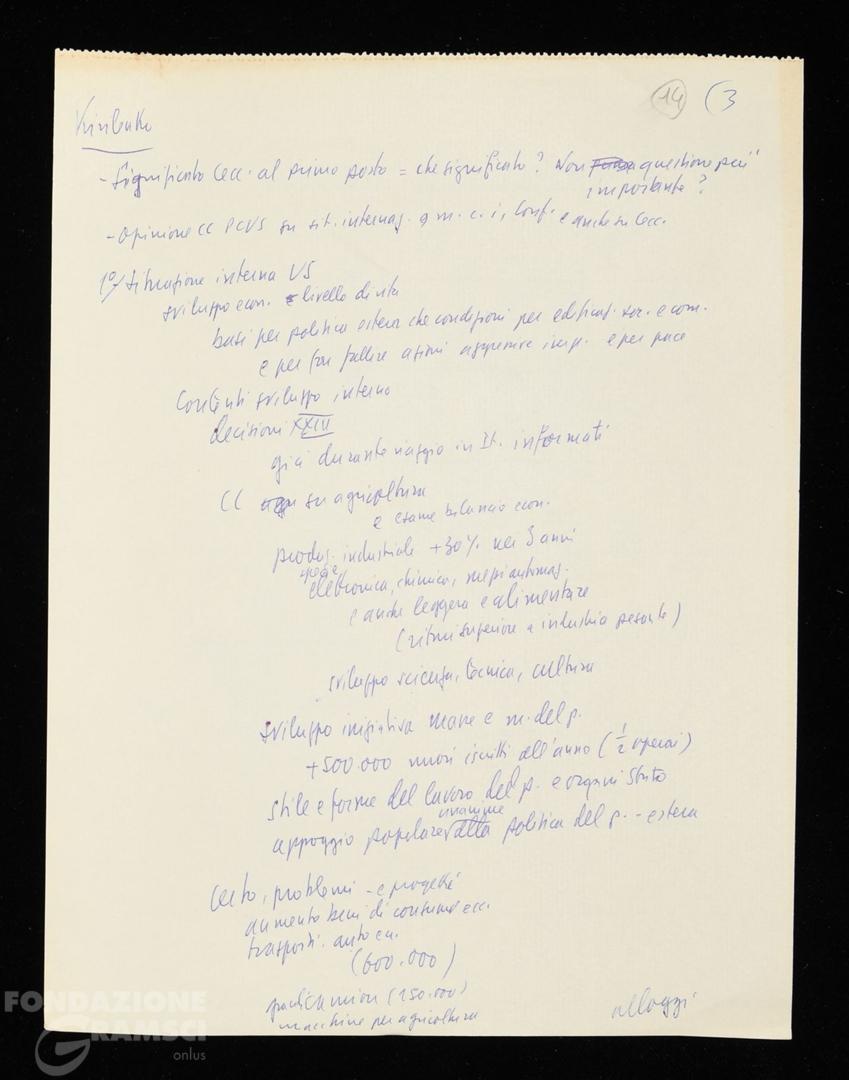 14 (3
Kirilenko
- Significato Cec. al primo posto = che significato? Non questione più
importante?
- Opinione CC PCUS su sit. internaz. e m. c. i, Conf. e anche su Cec.
1°/ Situazione interna US
sviluppo econ. e livello di vita
basi per politica estera che condizioni per edificaz. soc. e com.
e per far fallire azioni aggressive imp. e per pace
Contenti sviluppo interno
decisioni XXIV
già durante viaggio in It. informati
CC su agricoltura
e esame bilancio econ.
produz. industriale +30% nei 3 anni
specie
elettronica, chimica, mezzi automaz.
e anche leggera e alimentare
(ritmi superiore a industria pesante)
sviluppo scienza, tecnica, cultura
sviluppo iniziativa masse e m. del p.
+500.000 nuovi iscritti all'anno (1/2 operai)
stile e forme del lavoro del p. e organi Stato
unanime
appoggio popolare alla politica del p. - estera
Certo, problemi - e progetti
aumento beni di consumo ecc.
trasporti. auto
(600.000)
camion (150.000)
macchine per agricoltura
alloggi
FONDAZIONE
GRAMSCI
onlus